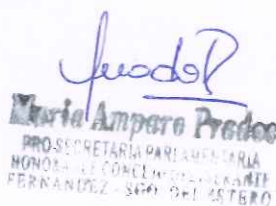 María Amparo Prados
PROSECRETARIA PARLAMENTARIA
HONORABLE CONCEJO DELIBERANTE
FERNANDEZ - SGO DEL ESTERO